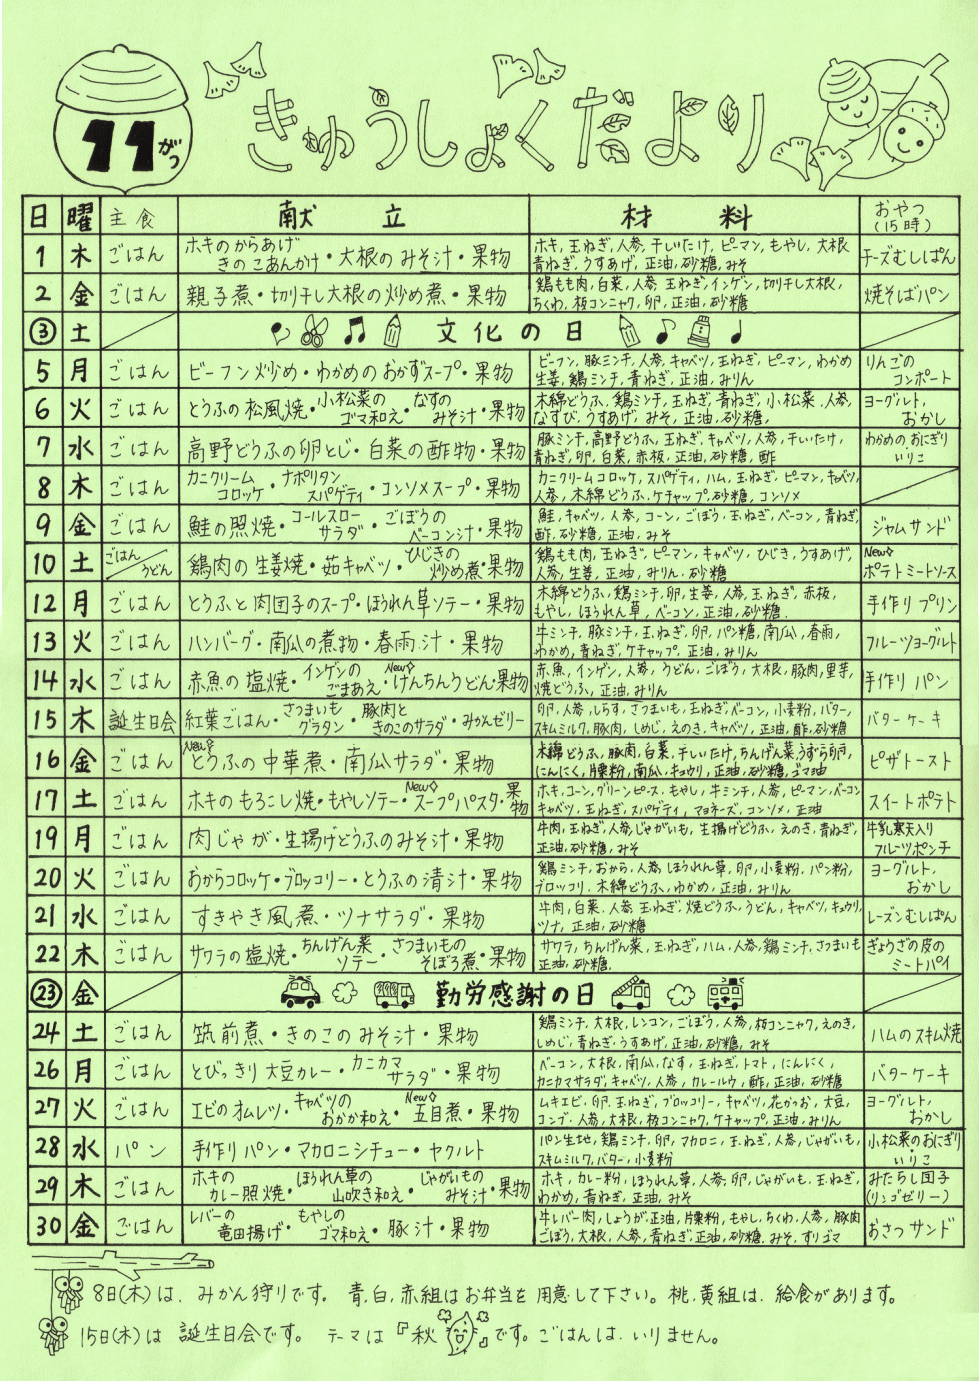 11がつ
きゅうしょくだより
日 曜 主食 献立 材料 おやつ(15時)
1 木 ごはん ホキのからあげきのこあんかけ・大根のみそ汁・果物 ホキ,玉ねぎ,人参,干いたけ,ピーマン,もやし,大根 青ねぎ,うすあげ,正油,砂糖,みそ チーズむしぱん
2 金 ごはん 親子煮・切り干し大根の炒め煮・果物 鶏もも肉,白菜,人参,玉ねぎ,インゲン,切り干し大根, ちくわ,板コニャク,卵,正油,砂糖 焼そばパン
③ 土 文化の日
5 月 ごはん ビーフン炒め・わかめのおかずスープ・果物 ビーフン,豚ミンチ,人参,キャベツ,玉ねぎ,ピーマン,わかめ 生姜,鶏ミンチ,青ねぎ,正油,みりん りんごのコンポート
6 火 ごはん とうふの松風焼・小松菜のゴマ和え・なすのみそ汁・果物 木綿どうふ,鶏ミンチ,玉ねぎ,青ねぎ,小松菜,人参, なすび,うすあげ,みそ,正油,砂糖, ヨーグルト,おかし
7 水 ごはん 高野どうふの卵とじ・白菜の酢物・果物 豚ミンチ,高野どうふ,玉ねぎ,キャベツ,人参,干いたけ, 青ねぎ,卵,白菜,赤板,正油,砂糖,酢 わかめのおにぎり いりこ
8 木 ごはん カニクリームコロッケ・ナポリタンスパゲティ・コンソメスープ・果物 カニクリームコロッケ,スパゲティ,ハム,玉ねぎ,ピーマン,キャベツ, 人参,木綿どうふ,ケチャップ,砂糖,コンソメ
9 金 ごはん 鮭の照焼・コールスローサラダ・ごぼうのベーコン汁・果物 鮭,キャベツ,人参,コーン,ごぼう,玉ねぎ,ベーコン,青ねぎ, 酢,砂糖,正油,みそ ジャムサンド
10 土 ごはん/うどん 鶏肉の生姜焼・茹キャベツ・ひじきの炒め煮・果物 鶏もも肉,玉ねぎ,ピーマン,キャベツ,ひじき,うすあげ, 人参,生姜,正油,みりん,砂糖 New ポテトミートソース
12 月 ごはん とうふと肉団子のスープ・ほうれん草ソテー・果物 木綿どうふ,鶏ミンチ,卵,生姜,人参,玉ねぎ,赤板, もやし,ほうれん草,ベーコン,正油,砂糖. 手作りプリン
13 火 ごはん ハンバーグ・南瓜の煮物・春雨汁・果物 牛ミンチ,豚ミンチ,玉ねぎ,卵,パン糖,南瓜,春雨, わかめ,青ねぎ,ケチャップ,正油,みりん フルーツヨーグルト
14 水 ごはん 赤魚の塩焼・インゲンのごまあえ・New けんちんうどん・果物 赤魚,インゲン,人参,うどん,ごぼう,大根,豚肉,里芋, 焼どうふ,正油,みりん 手作りパン
15 木 誕生日会 紅葉ごはん・さつまいもグラタン・豚肉ときのこのサラダ・みかんゼリー 卵,人参,しらす,さつまいも,玉ねぎ,ベーコン,小麦粉,バター, スキムミルク,豚肉,しめじ,えのき,キャベツ,正油,酢,砂糖 バターケーキ
16 金 ごはん New とうふの中華煮・南瓜サラダ・果物 木綿どうふ,豚肉,白菜,干しいたけ,ちんげん菜,うずら卵, にんにく,片栗粉,南瓜,キュウリ,正油,砂糖,ゴマ油 ピザトースト
17 土 ごはん ホキのもろこし焼・もやしソテー・New スープパスタ・果物 ホキ,コーン,グリーンピース,もやし,牛ミンチ,人参,ピーマン,ベーコン キャベツ,玉ねぎ,スパゲティ,マヨネーズ,コンソメ,正油 スイートポテト
19 月 ごはん 肉じゃが・生揚げどうふのみそ汁・果物 牛肉,玉ねぎ,人参,じゃがいも,生揚げどうふ,えのき,青ねぎ, 正油,砂糖,みそ 牛乳寒天入りフルーツポンチ
20 火 ごはん おからコロッケ・ブロッコリー・とうふの清汁・果物 鶏ミンチ,おから,人参,ほうれん草,卵,小麦粉,パン粉, ブロッコリ,木綿どうふ,わかめ,正油,みりん ヨーグルト,おかし
21 水 ごはん すきやき風煮・ツナサラダ・果物 牛肉,白菜,人参,玉ねぎ,焼どうふ,うどん,キャベツ,キュウリ, ツナ,正油,砂糖 レーズンむしぱん
22 木 ごはん サワラの塩焼・ちんげん菜ソテー・さつまいものそぼろ煮・果物 サワラ,ちんげん菜,玉ねぎ,ハム,人参,鶏ミンチ,さつまいも 正油,砂糖. ぎょうざの皮のミートパイ
㉓ 金 勤労感謝の日
24 土 ごはん 筑前煮・きのこのみそ汁・果物 鶏ミンチ,大根,レンコン,ごぼう,人参,板コニャク,えのき, しめじ,青ねぎ,うすあげ,正油,砂糖,みそ ハムのスキム焼
26 月 ごはん とびっきり大豆カレー・カニカマサラダ・果物 ベーコン,大根,南瓜,なす,玉ねぎ,トマト,にんにく, カニカマサラダ,キャベツ,人参,カレールウ,酢,正油,砂糖 バターケーキ
27 火 ごはん エビのオムレツ・キャベツのおかか和え・New 五目煮・果物 ムキエビ,卵,玉ねぎ,ブロッコリー,キャベツ,花かつお,大豆, コンブ,人参,大根,板コンニャク,ケチャップ,正油,みりん ヨーグルト,おかし
28 水 パン 手作りパン・マカロニシチュー・ヤクルト パン生地,鶏ミンチ,卵,マカロニ,玉ねぎ,人参,じゃがいも, スキムミルク,バター,小麦粉 小松菜のおにぎり・いりこ
29 木 ごはん ホキのカレー照焼・ほうれん草の山吹き和え・じゃがいものみそ汁・果物 ホキ,カレー粉,ほうれん草,人参,卵,じゃがいも,玉ねぎ, わかめ,青ねぎ,正油,みそ みたらし団子(リンゴゼリー)
30 金 ごはん レバーの竜田揚げ・もやしのゴマ和え・豚汁・果物 牛レバー肉,しょうが,正油,片栗粉,もやし,ちくわ,人参,豚肉 ごぼう,大根,人参,青ねぎ,正油,砂糖,みそ,すりゴマ おさつサンド
8日(木)は、みかん狩りです。青,白,赤組はお弁当を用意して下さい。桃,黄組は、給食があります。
15日(木)は 誕生日会です。テーマは『秋』です。ごはんは、いりません。